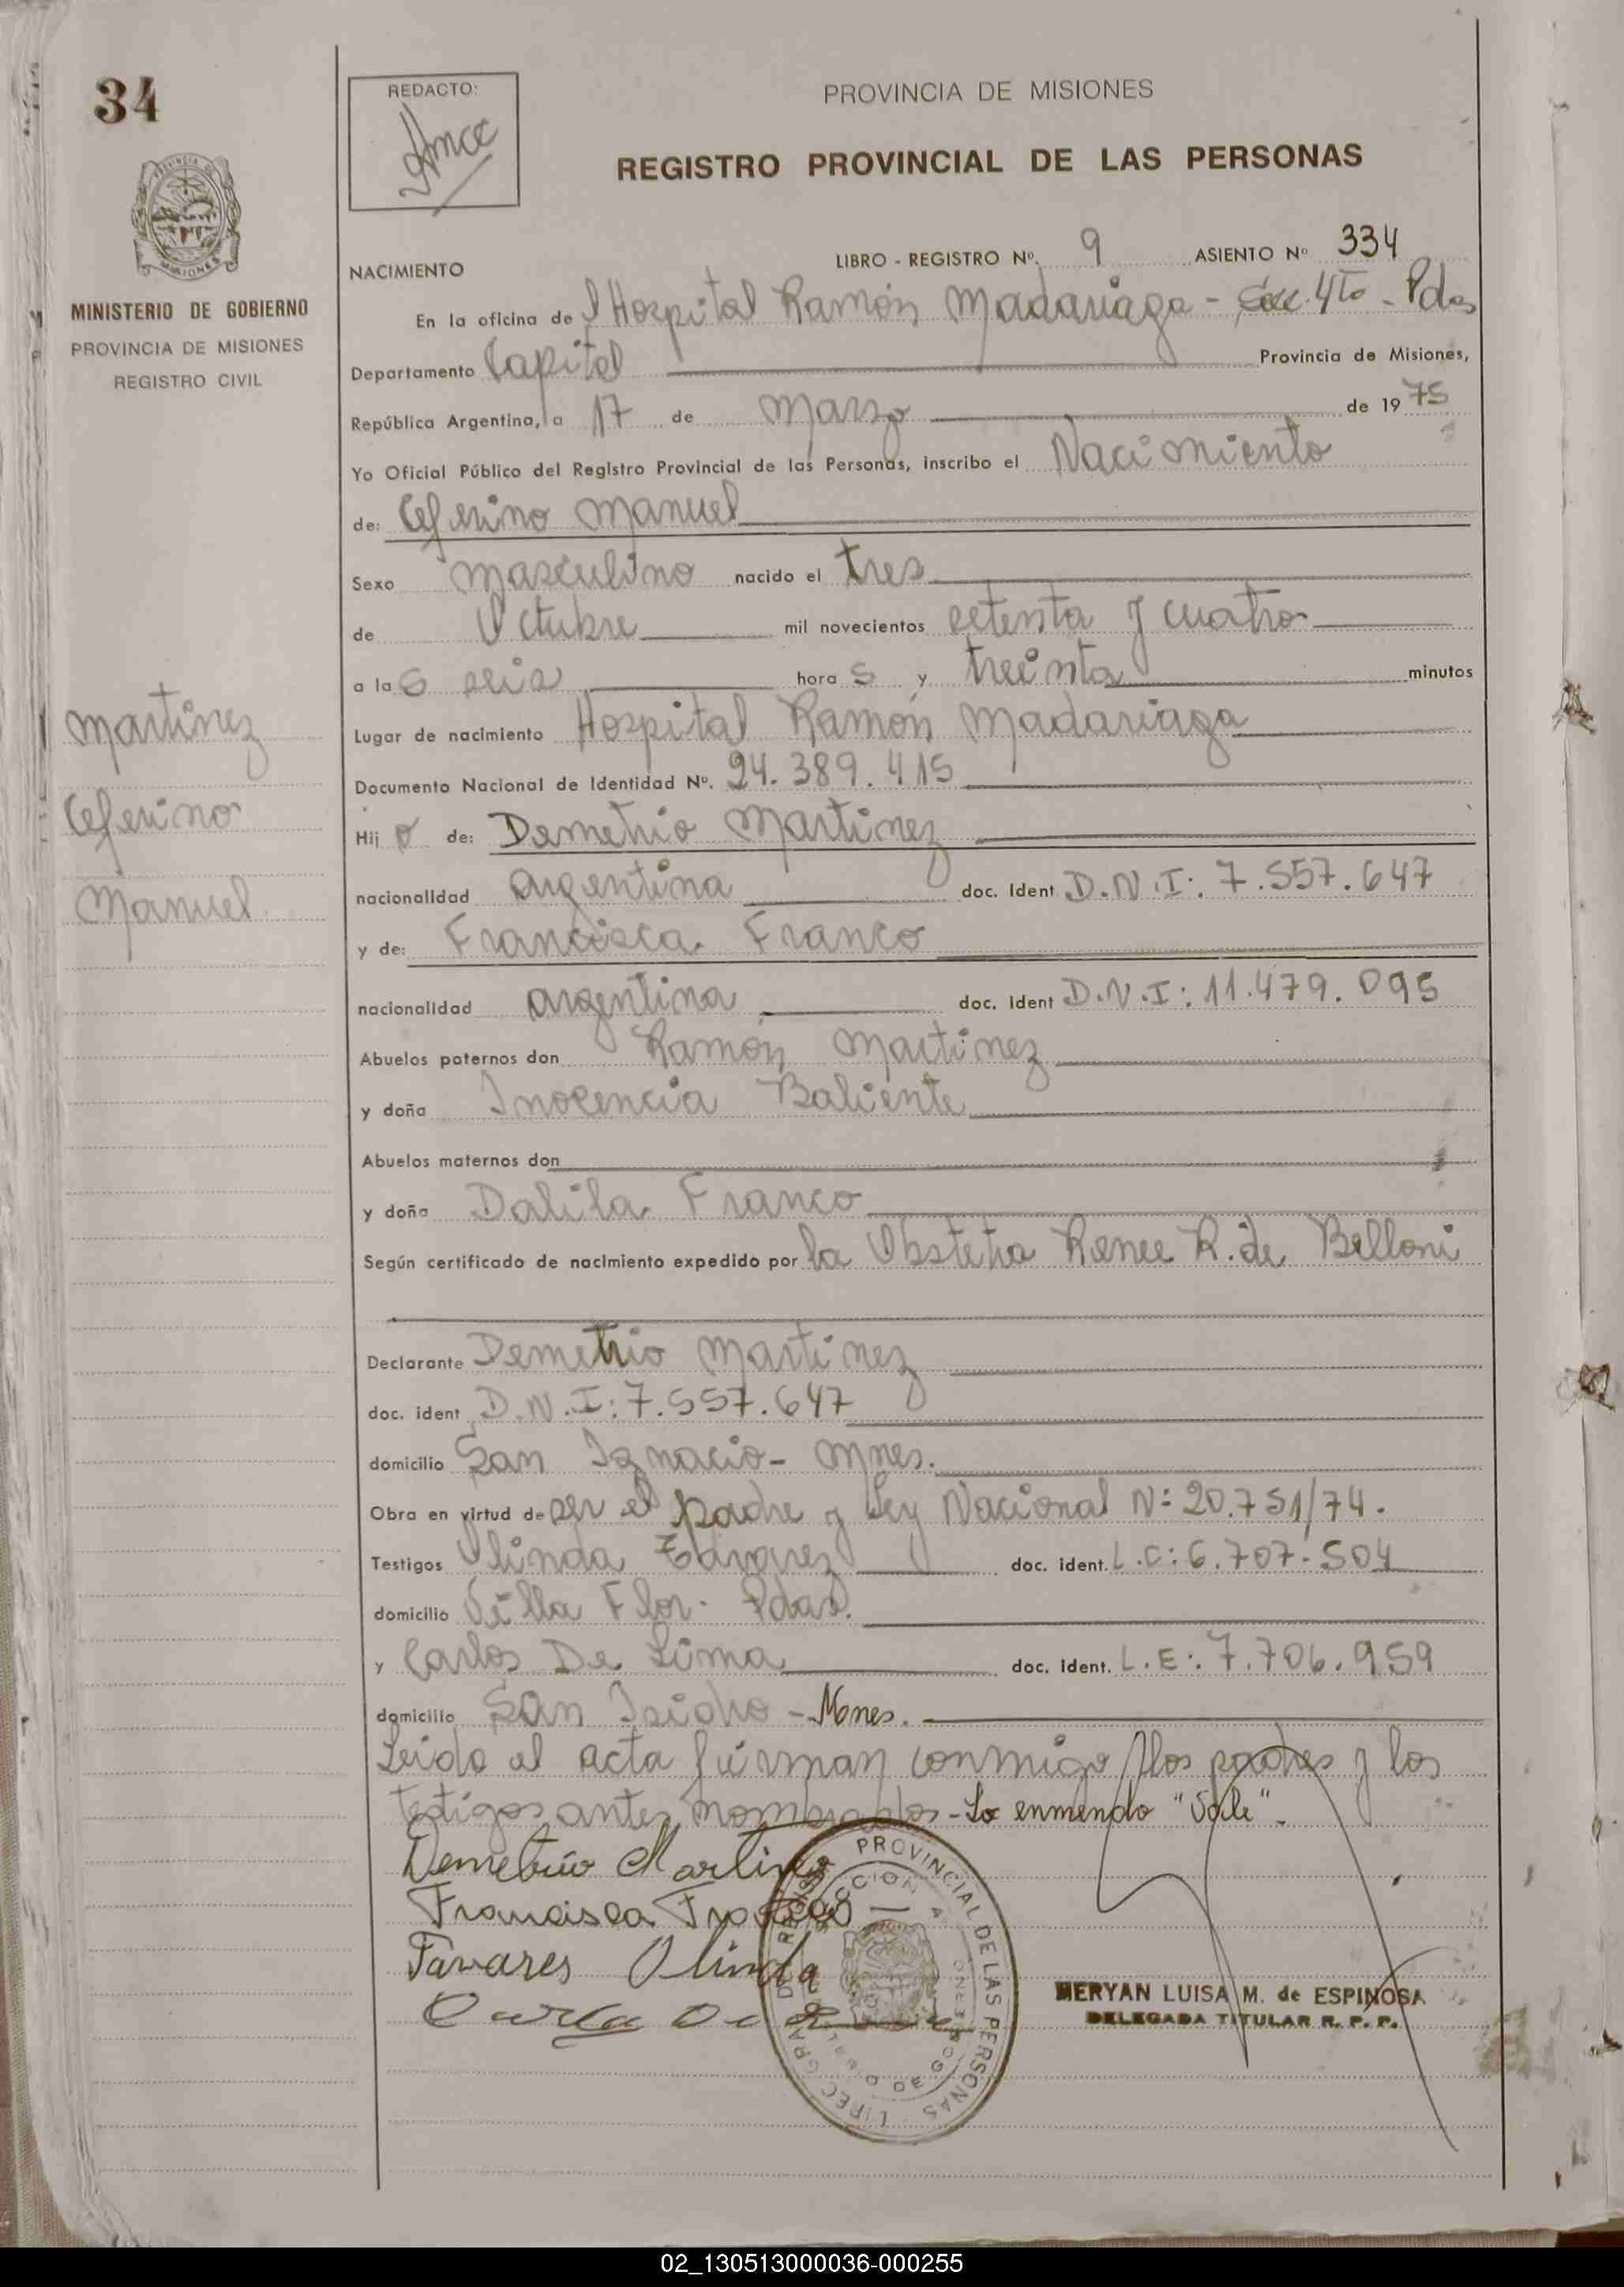 34
REDACTO:
PROVINCIA DE MISIONES
REGISTRO PROVINCIAL DE LAS PERSONAS
MINISTERIO DE GOBIERNO
PROVINCIA DE MISIONES
REGISTRO CIVIL
NACIMIENTO
LIBRO - REGISTRO Nº. 9 ASIENTO Nº 334
En la oficina de l Hospital Ramón Madariaga - Secc. 4to - Pdas
Departamento Capital Provincia de Misiones,
República Argentina, a 17 de Marzo de 1975
Yo Oficial Público del Registro Provincial de las Personas, inscribo el Nacimiento
de: Ceferino Manuel
Sexo masculino nacido el tres
de Octubre mil novecientos setenta y cuatro
a las seis horas y treinta minutos
Martinez
Ceferino
Manuel
Lugar de nacimiento Hospital Ramón Madariaga
Documento Nacional de Identidad Nº. 24.389.415
Hijo de: Demetrio Martinez
nacionalidad argentina doc. Ident D.N.I: 7.557.647
y de: Francisca Franco
nacionalidad argentina doc. Ident D.N.I: 11.479.095
Abuelos paternos don Ramón Martinez
y doña Inocencia Baliente
Abuelos maternos don
y doña Dalila Franco
Según certificado de nacimiento expedido por la Obstetra Renee R. de Belloni
Declarante Demetrio Martinez
doc. ident D.N.I: 7.557.647
domicilio San Ignacio - Mnes.
Obra en virtud de ser el padre y Ley Nacional N: 20.751/74.
Testigos Olinda Tavarez doc. ident. L.C: 6.707.504
domicilio Villa Flor - Pdas.
y Carlos De Lima doc. ident. L.E: 7.706.959
domicilio San Isidro - Mnes.
Leido el acta firman conmigo los padres y los
testigos antes nombrados - Lo enmendo "Vale".
Demetrio Martinez
Francisca Franco
Tavares Olinda
Carlos De Lima
PROVINCIAL DE LAS PERSONAS
MERYAN LUISA M. de ESPINOSA
DELEGADA TITULAR R. P. P.
02_130513000036-000255